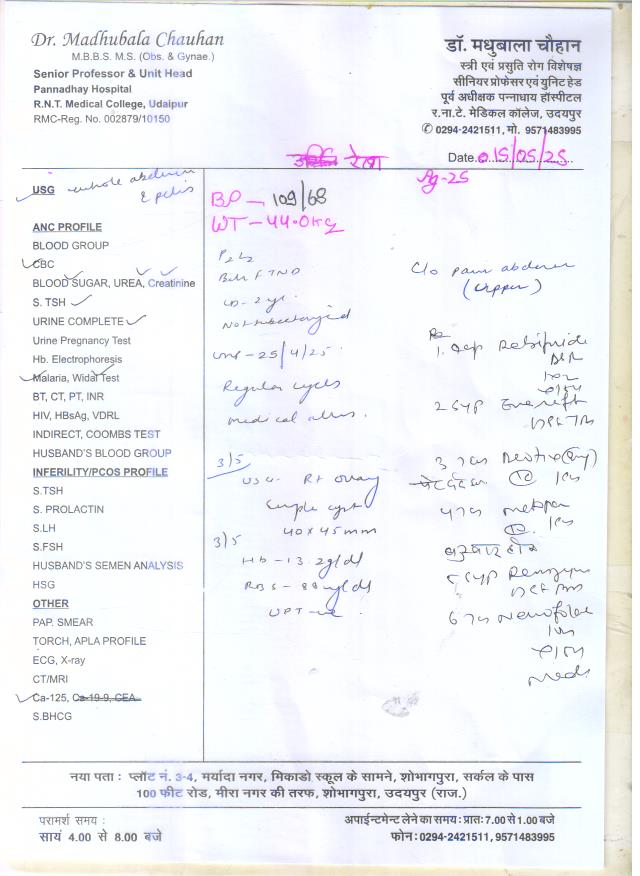 Dr. Madhubala Chauhan
M.B.B.S. M.S. (Obs. & Gynae.)
Senior Professor & Unit Head
Pannadhay Hospital
R.N.T. Medical College, Udaipur
RMC-Reg. No. 002879/10150
डॉ. मधुबाला चौहान
स्त्री एवं प्रसुति रोग विशेषज्ञ
सीनियर प्रोफेसर एवं युनिट हेड
पूर्व अधीक्षक पन्नाधाय हॉस्पीटल
र.ना.टे. मेडिकल कॉलेज, उदयपुर
✆ 0294-2421511, मो. 9571483995
रेखा
Date 015/05/25
Ag-25
USG whole abdomen
& pelvis
ANC PROFILE
BLOOD GROUP
CBC
BLOOD SUGAR, UREA, Creatinine
S. TSH
URINE COMPLETE
Urine Pregnancy Test
Hb. Electrophoresis
Malaria, Widal Test
BT, CT, PT, INR
HIV, HBsAg, VDRL
INDIRECT, COOMBS TEST
HUSBAND'S BLOOD GROUP
INFERILITY/PCOS PROFILE
S.TSH
S. PROLACTIN
S.LH
S.FSH
HUSBAND'S SEMEN ANALYSIS
HSG
OTHER
PAP. SMEAR
TORCH, APLA PROFILE
ECG, X-ray
CT/MRI
Ca-125, Ca-19-9, CEA
S.BHCG
BP - 109/68
WT - 44.0Kg
P2L2
Both FTND
LD - 2 yr.
LMP - 25/4/25
Regular cycles
3/5
USG - Rt ovary
Simple cyst
40 x 45 mm
3/5
Hb - 13.2g/dl
RBS - 88mg/dl
UPT -ve
C/o pain abdomen
(upper)
Rx
1. Cap
2 Syp
3 Tab
4 Tab
5 Syp
6 Tab
नया पता : प्लॉट नं. 3-4, मर्यादा नगर, मिकाडो स्कूल के सामने, शोभागपुरा, सर्कल के पास
100 फीट रोड, मीरा नगर की तरफ, शोभागपुरा, उदयपुर (राज.)
परामर्श समय :
सायं 4.00 से 8.00 बजे
अपाईन्टमेन्ट लेने का समय : प्रातः 7.00 से 1.00 बजे
फोन : 0294-2421511, 9571483995